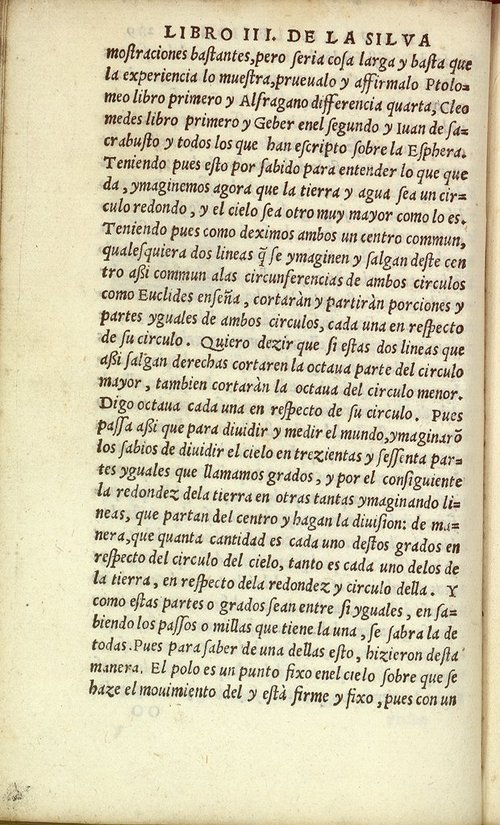 LIBRO III. DE LA SILVA
mostraciones bastantes, pero seria cosa larga y basta que
la experiencia lo muestra, prueualo y affirmalo Ptolo-
meo libro primero y Alfragano differencia quarta, Cleo
medes libro primero y Geber enel segundo y Iuan de sa-
crabusto y todos los que han escripto sobre la Esphera.
Teniendo pues esto por sabido para entender lo que que
da, ymaginemos agora que la tierra y agua sea un cir-
culo redondo, y el cielo sea otro muy mayor como lo es.
Teniendo pues como deximos ambos un centro commun,
qualesquiera dos lineas q̃ se ymaginen y salgan deste cen
tro aßi commun alas circunferencias de ambos circulos
como Euclides enseña, cortaràn y partiràn porciones y
partes yguales de ambos circulos, cada una en respecto
de su circulo. Quiero dezir que si estas dos lineas que
aßi salgan derechas cortaren la octaua parte del circulo
mayor, tambien cortaràn la octaua del circulo menor.
Digo octaua cada una en respecto de su circulo. Pues
passa aßi que para diuidir y medir el mundo, ymaginarõ
los sabios de diuidir el cielo en trezientas y sessenta par-
tes yguales que llamamos grados, y por el consiguiente
la redondez dela tierra en otras tantas ymaginando li-
neas, que partan del centro y hagan la diuision: de ma-
nera, que quanta cantidad es cada uno destos grados en
respecto del circulo del cielo, tanto es cada uno delos de
la tierra, en respecto dela redondez y circulo della. Y
como estas partes o grados sean entre si yguales, en sa-
biendo los passos o millas que tiene la una, se sabra la de
todas. Pues para saber de una dellas esto, hizieron desta
manera. El polo es un punto fixo enel cielo sobre que se
haze el mouimiento del y està firme y fixo, pues con un